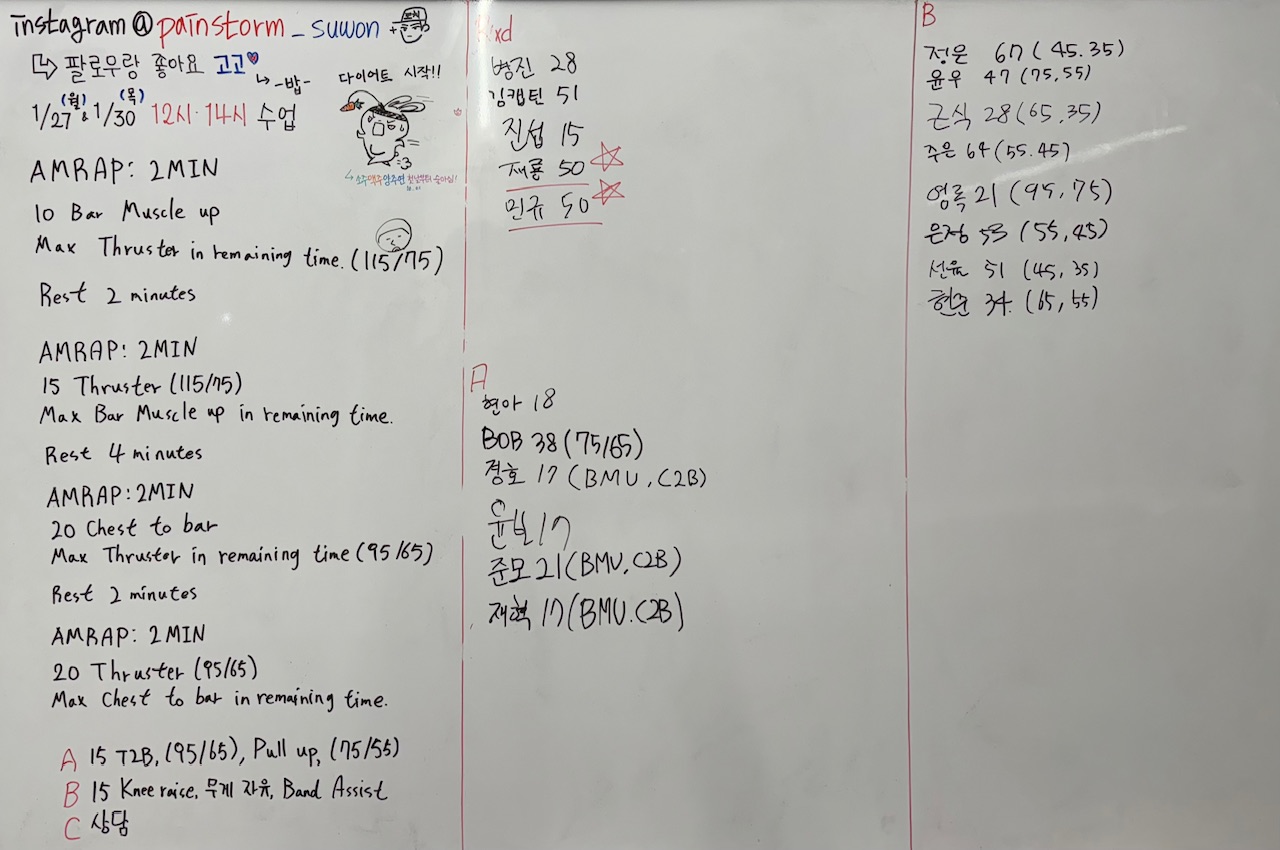 instagram @ painstorm _ suwon +
↳ 팔로우랑 좋아요 고고♥
↳ -밥-
1/27(월) & 1/30(목) 12시·14시 수업
다이어트 시작!!
AMRAP: 2MIN
10 Bar Muscle up
Max Thruster in remaining time. (115/75)
Rest 2 minutes
AMRAP: 2MIN
15 Thruster (115/75)
Max Bar Muscle up in remaining time.
Rest 4 minutes
AMRAP: 2MIN
20 Chest to bar
Max Thruster in remaining time (95/65)
Rest 2 minutes
AMRAP: 2MIN
20 Thruster (95/65)
Max Chest to bar in remaining time.
A 15 T2B, (95/65), Pull up, (75/55)
B 15 Knee raise, 무게 자유, Band Assist
C 상담
병진 28
김캡틴 51
진섭 15
재룡 50 ☆
민규 50 ☆
A
현아 18
BOB 38 (75/65)
경호 17 (BMU, C2B)
17
준모 21 (BMU, C2B)
재혁 17 (BMU. C2B)
B
정은 67 (45.35)
윤우 47 (75,55)
근식 28 (65,35)
주은 64 (55.45)
영록 21 (95,75)
은정 53 (55,45)
51 (45, 35)
현준 34. (65, 55)